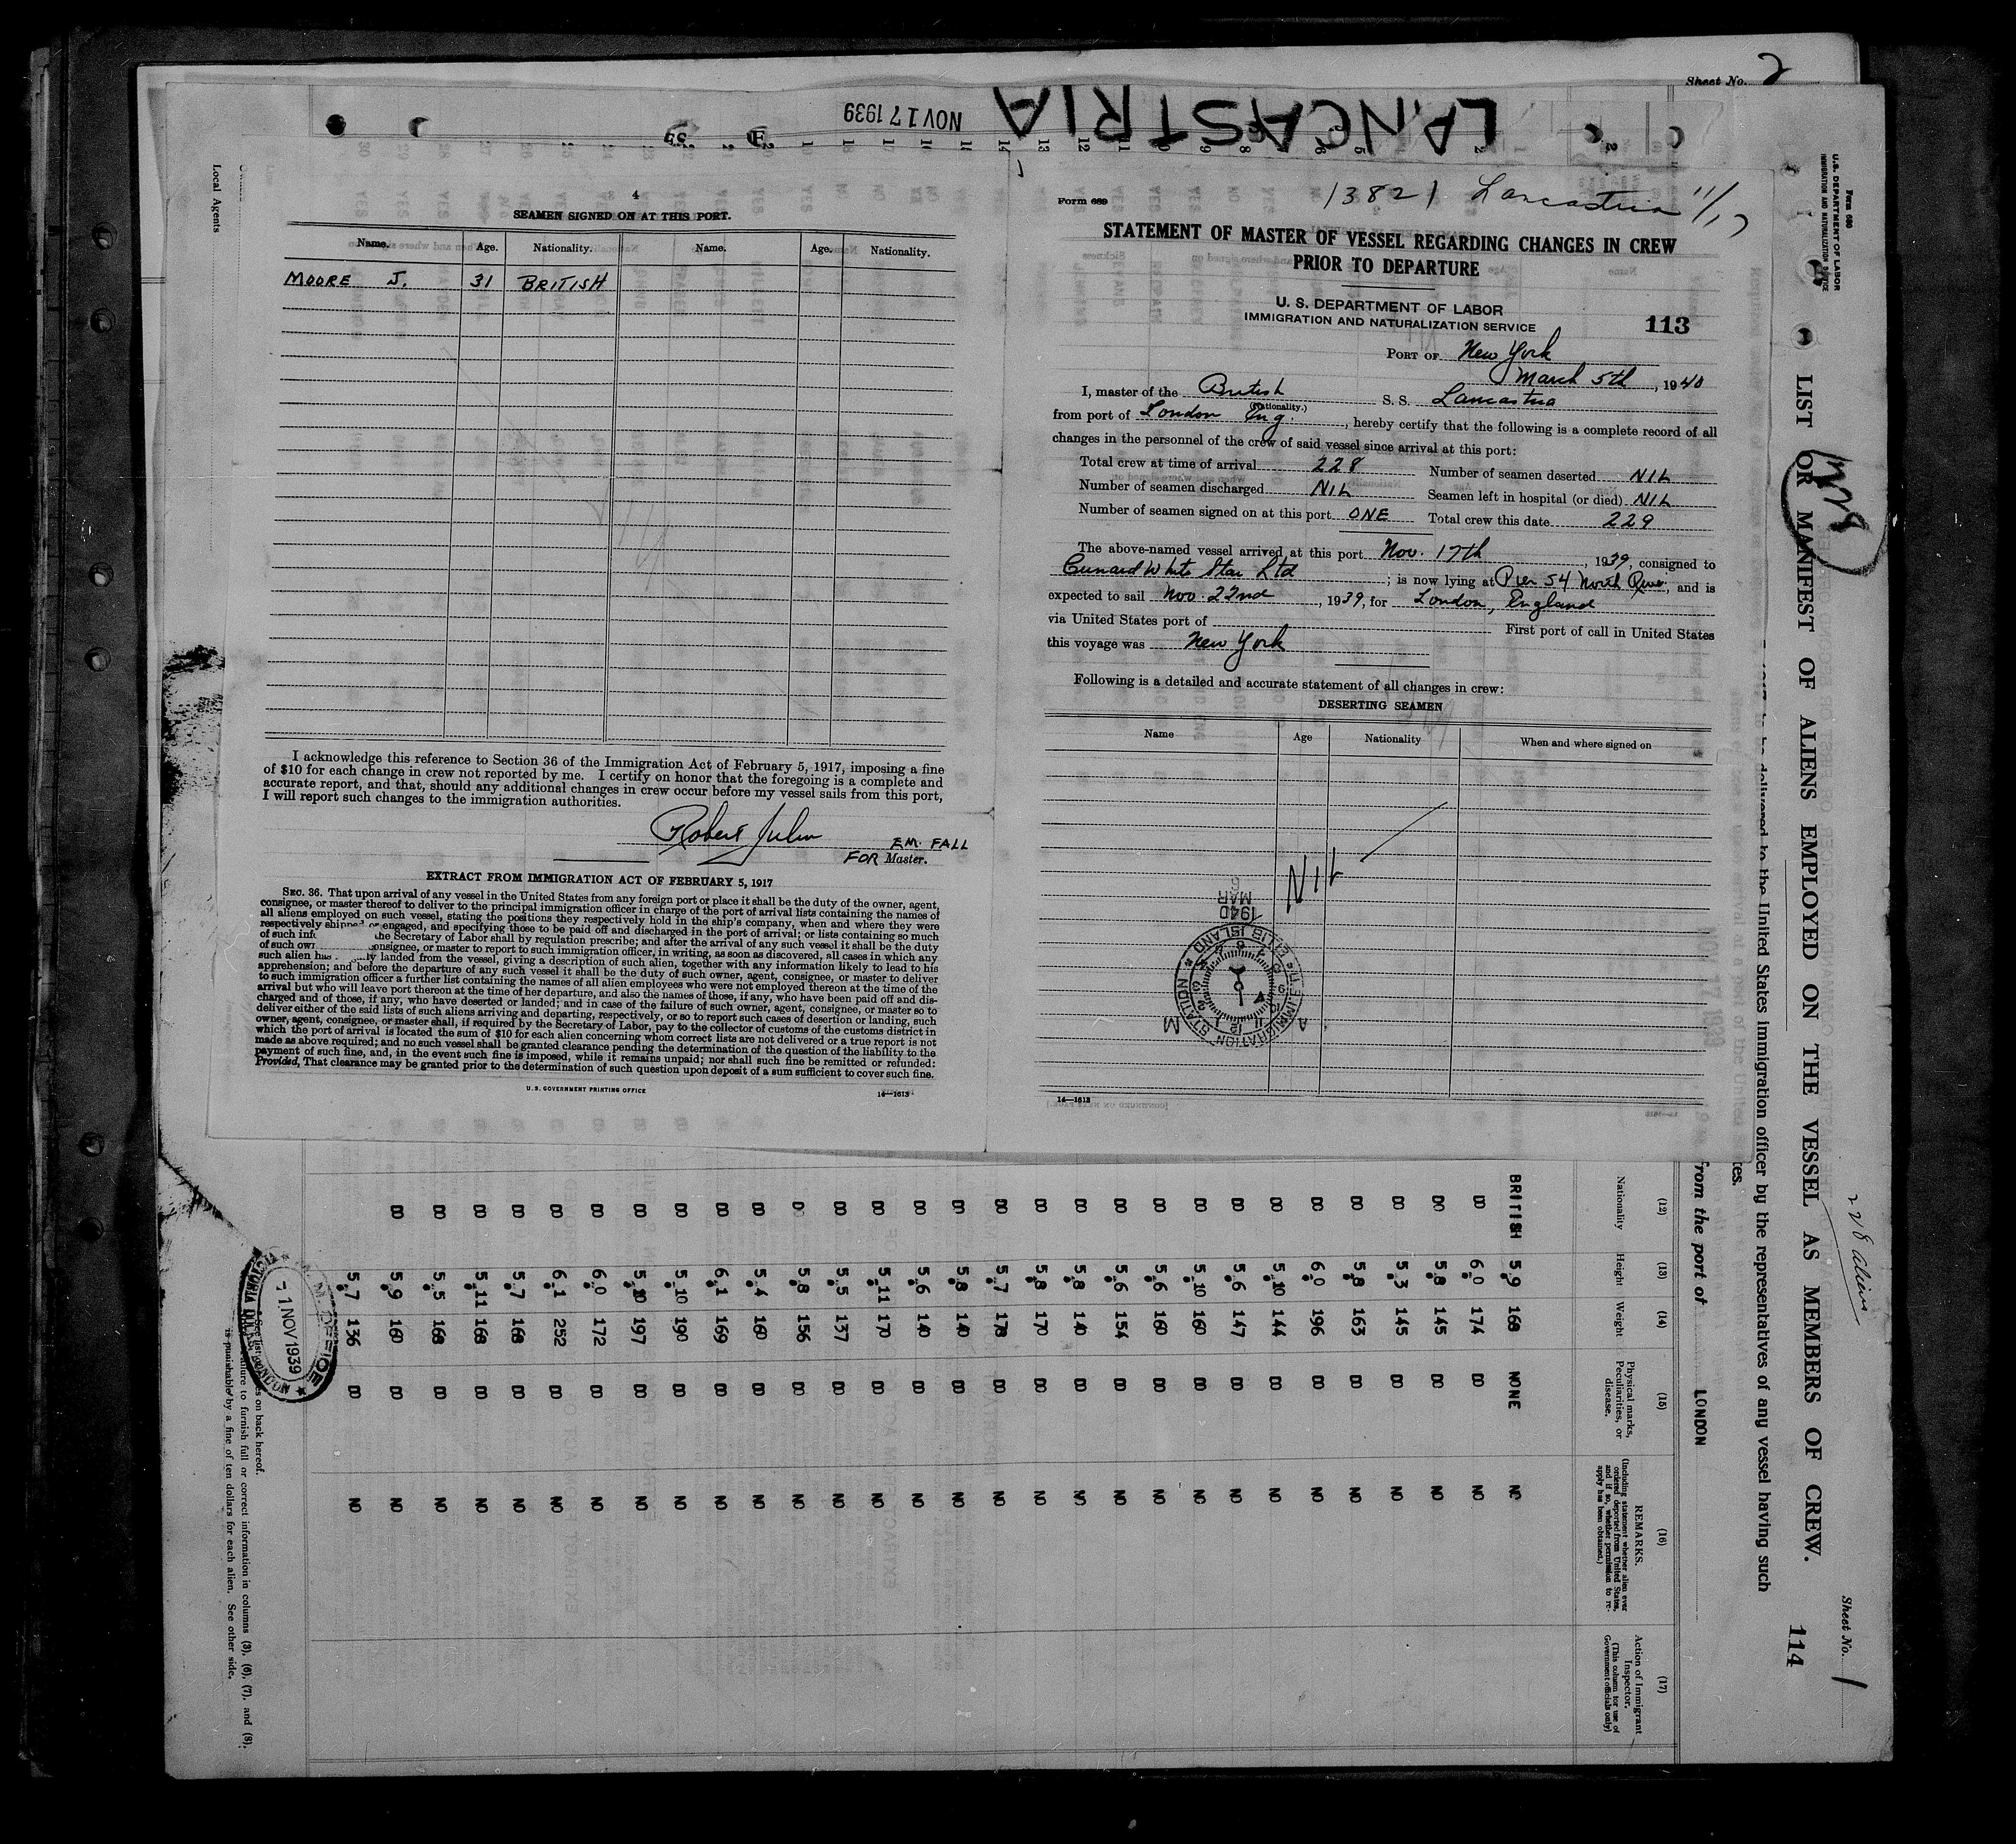 Sheet No. 2
LANCASTRIA
NOV 17 1939
Local Agents
4
SEAMEN SIGNED ON AT THIS PORT.
Name. Age. Nationality. Name. Age. Nationality.
MOORE J. 31 BRITISH
I acknowledge this reference to Section 36 of the Immigration Act of February 5, 1917, imposing a fine
of $10 for each change in crew not reported by me. I certify on honor that the foregoing is a complete and
accurate report, and that, should any additional changes in crew occur before my vessel sails from this port,
I will report such changes to the immigration authorities.
Robert
EM. FALL
FOR Master.
EXTRACT FROM IMMIGRATION ACT OF FEBRUARY 5, 1917
SEC. 36. That upon arrival of any vessel in the United States from any foreign port or place it shall be the duty of the owner, agent,
consignee, or master thereof to deliver to the principal immigration officer in charge of the port of arrival lists containing the names of
all aliens employed on such vessel, stating the positions they respectively hold in the ship's company, when and where they were
respectively shipped or engaged, and specifying those to be paid off and discharged in the port of arrival; or lists containing so much
of such inf the Secretary of Labor shall by regulation prescribe; and after the arrival of any such vessel it shall be the duty
of such own onsignee, or master to report to such immigration officer, in writing, as soon as discovered, all cases in which any
such alien has ly landed from the vessel, giving a description of such alien, together with any information likely to lead to his
apprehension; and before the departure of any such vessel it shall be the duty of such owner, agent, consignee, or master to deliver
to such immigration officer a further list containing the names of all alien employees who were not employed thereon at the time of the
arrival but who will leave port thereon at the time of her departure, and also the names of those, if any, who have been paid off and dis-
charged and of those, if any, who have deserted or landed; and in case of the failure of such owner, agent, consignee, or master so to
deliver either of the said lists of such aliens arriving and departing, respectively, or so to report such cases of desertion or landing, such
owner, agent, consignee, or master shall, if required by the Secretary of Labor, pay to the collector of customs of the customs district in
which the port of arrival is located the sum of $10 for each alien concerning whom correct lists are not delivered or a true report is not
made as above required; and no such vessel shall be granted clearance pending the determination of the question of the liability to the
payment of such fine, and, in the event such fine is imposed, while it remains unpaid; nor shall such fine be remitted or refunded:
Provided, That clearance may be granted prior to the determination of such question upon deposit of a sum sufficient to cover such fine.
U. S. GOVERNMENT PRINTING OFFICE 14—1613
13821 Lancastria 11/17
Form 689
STATEMENT OF MASTER OF VESSEL REGARDING CHANGES IN CREW
PRIOR TO DEPARTURE
U. S. DEPARTMENT OF LABOR
IMMIGRATION AND NATURALIZATION SERVICE
113
PORT OF New York
March 5th, 1940
I, master of the British S. S. Lancastria
(Nationality.)
from port of London Eng., hereby certify that the following is a complete record of all
changes in the personnel of the crew of said vessel since arrival at this port:
Total crew at time of arrival 228 Number of seamen deserted NIL
Number of seamen discharged NIL Seamen left in hospital (or died) NIL
Number of seamen signed on at this port ONE Total crew this date 229
The above-named vessel arrived at this port Nov. 17th, 1939, consigned to
Cunard White Star Ltd; is now lying at Pier 54 North River, and is
expected to sail Nov. 22nd, 1939, for London, England
via United States port of First port of call in United States
this voyage was New York
Following is a detailed and accurate statement of all changes in crew:
DESERTING SEAMEN
Name Age Nationality When and where signed on
NIL
1940 MAR
U.S. IMMIGRATION STATION ELLIS ISLAND
A M
14—1613
Form 680
U. S. DEPARTMENT OF LABOR
IMMIGRATION AND NATURALIZATION SERVICE
228 aliens
Sheet No. 1
LIST OR MANIFEST OF ALIENS EMPLOYED ON THE VESSEL AS MEMBERS OF CREW. 114
to be delivered to the United States immigration officer by the representatives of any vessel having such
from the port of LONDON
(12) (13) (14) (15) (16) (17)
Nationality Height Weight Physical marks, Peculiarities, or disease. REMARKS. (Including statement whether alien ever ordered deported from United States, and if so, whether permission to reapply has been obtained.) Action of Immigrant Inspector. (This column for use of Government officials only)
BRITISH 5.9 168 NONE NO
DO 6.0 174 DO NO
DO 5.8 145 DO NO
DO 5.3 145 DO NO
DO 5.8 163 DO NO
DO 6.0 196 DO NO
DO 5.10 144 DO NO
DO 5.6 147 DO NO
DO 5.10 160 DO NO
DO 5.6 160 DO NO
DO 5.6 154 DO NO
DO 5.8 140 DO NO
DO 5.8 170 DO NO
DO 5.7 178 DO NO
DO 5.8 140 DO NO
DO 5.6 140 DO NO
DO 5.11 170 DO NO
DO 5.5 137 DO NO
DO 5.8 156 DO NO
DO 5.4 160 DO NO
DO 6.1 169 DO NO
DO 5.10 190 DO NO
DO 5.10 197 DO NO
DO 6.0 172 DO NO
DO 6.1 252 DO NO
DO 5.7 168 DO NO
DO 5.11 168 DO NO
DO 5.5 168 DO NO
DO 5.9 160 DO NO
5.7 136 DO NO
VICTORIA DOCKS, LONDON
-1 NOV 1939
on back hereof.
failure to furnish full or correct information in columns (3), (6), (7), and (8),
is punishable by a fine of ten dollars for each alien. See other side.